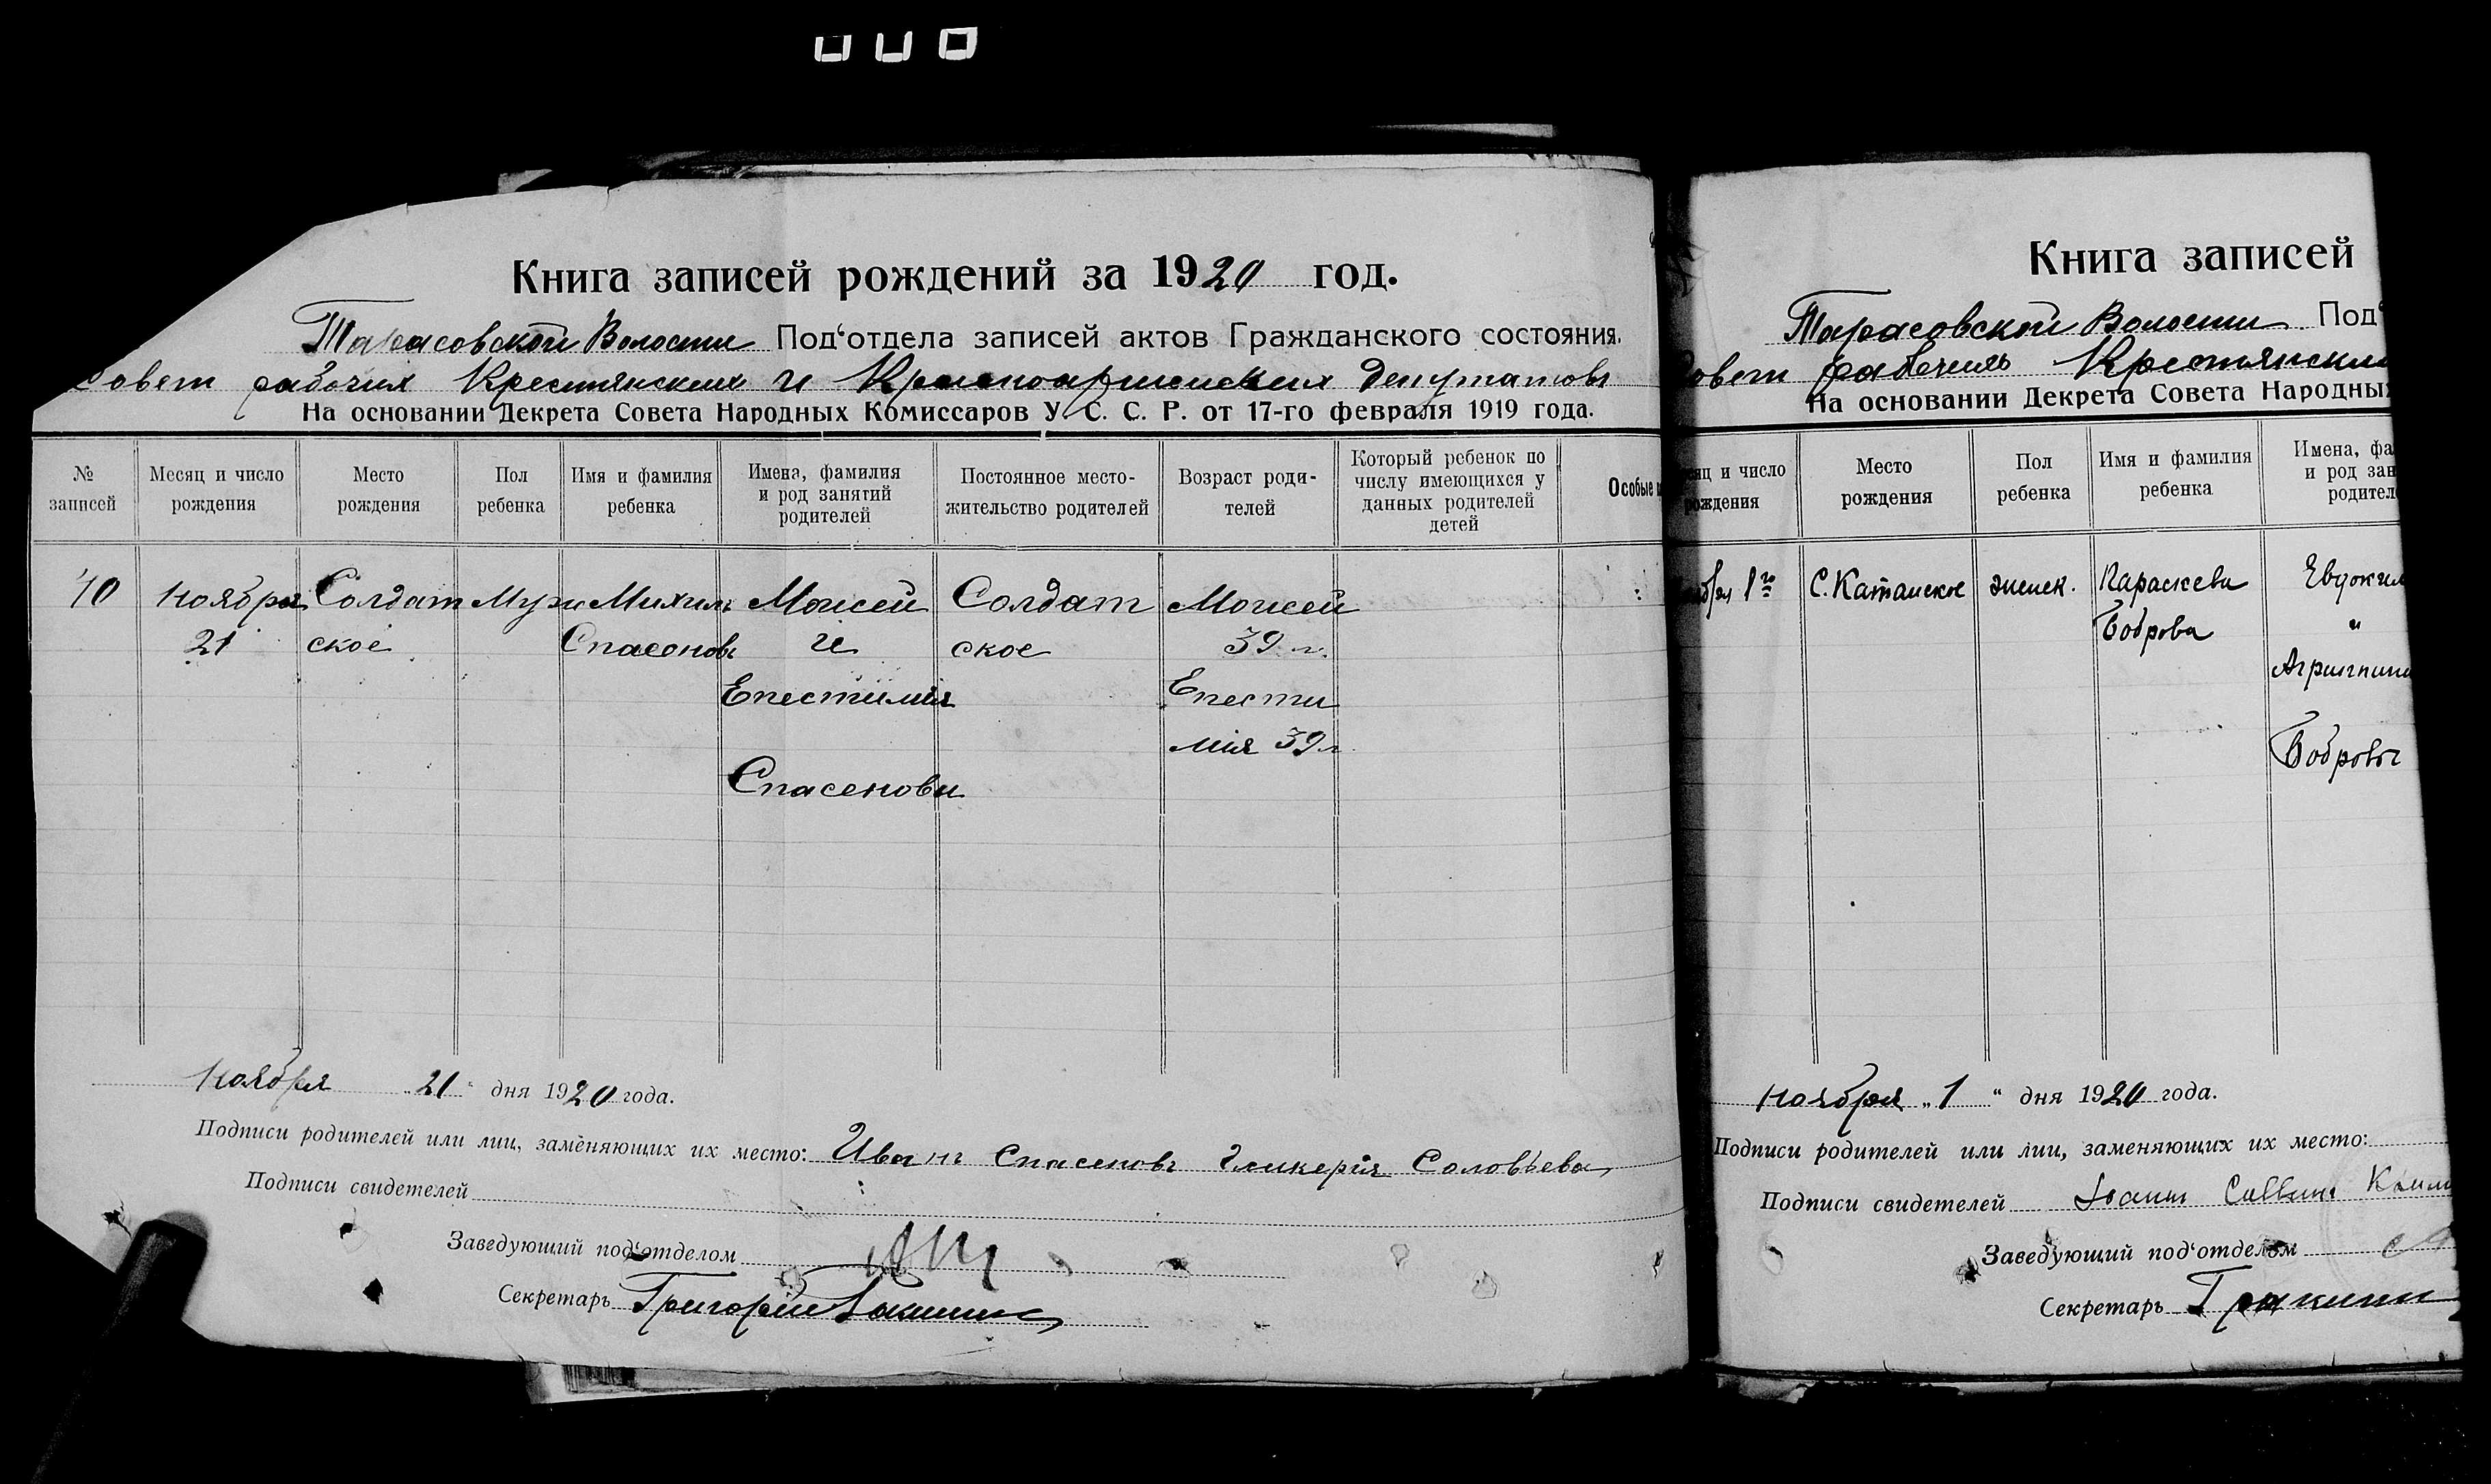 Книга записей рождений за 1920 год.
Тарасовской Волости Под‘отдела записей актов Гражданского состояния.
Совет рабочих Крестянских и Красноармейских Депутатовъ
На основании Декрета Совета Народных Комиссаров У. С. С. Р. от 17-го февраля 1919 года.
№ записей
Месяц и число рождения
Место рождения
Пол ребенка
Имя и фамилия ребенка
Имена, фамилия и род занятий родителей
Постоянное место-жительство родителей
Возраст роди-телей
Который ребенок по числу имеющихся у данных родителей детей
Особые
10
Ноября
21
Солдат
ское
Муж
Михаилъ
Спасеновъ
Моисей
и
Епестимія
Спасеновы
Солдат
ское
Моисей
39 л.
Епести
мія 39 л
Ноября „21“ дня 1920 года.
Подписи родителей или лиц, заменяющих их место: Иванъ Спасеновъ Гликерія Соловьева
Подписи свидетелей
Заведующий под‘отделом
Секретарь Григорій
Книга записей
Тарасовской Волости Под‘
Совет рабочихъ Крестянски
На основании Декрета Совета Народных
число
рождения
Место
рождения
Пол
ребенка
Имя и фамилия
ребенка
Имена, фа
и род зан
родител
1го
С. Катанское
женск.
Параскева
Боброва
Евдоким
"
Агриппина
Бобровы
Ноября „1“ дня 1920 года.
Подписи родителей или лиц, заменяющих их место:
Подписи свидетелей
Заведующий под‘отделом
Секретарь